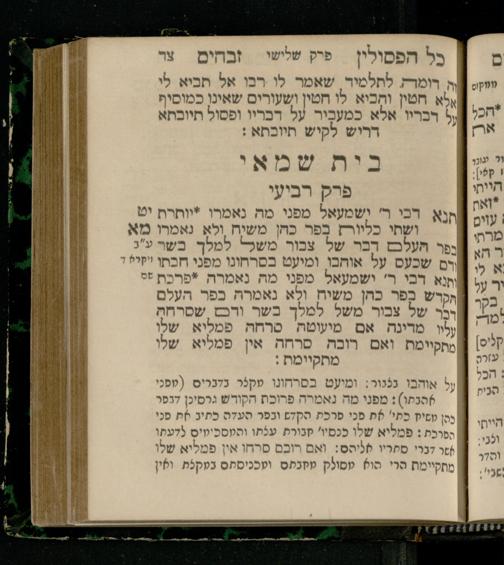 כל הפסולין פרק שלישי זבחים צד
זה דומה לתלמיד שאמר לו רבו אל תביא לי
אלא חטין והביא לו חטין ושעורים שאינו כמוסיף
על דבריו אלא כמעביר על דבריו ופסול תיובתא
דריש לקיש תיובתא :
בית שמאי
פרק רביעי
תנא דבי ר' ישמעאל מפני מה נאמרו *יותרת יט
ושתי כליות בפר כהן משיח ולא נאמרו מא
בפר העלם דבר של צבור משל למלך בשר ע"ב
ודם שכעס על אוהבו ומיעט בסרחונו מפני חבתו ויקרא ד
ותנא דבי ר' ישמעאל מפני מה נאמרה *פרכת שם
הקדש בפר כהן משיח ולא נאמרה בפר העלם
דבר של צבור משל למלך בשר ודם שסרחה
עליו מדינה אם מיעוטה סרחה פמליא שלו
מתקיימת ואם רובה סרחה אין פמליא שלו
מתקיימת :
על אוהבו בכבוד : ומיעט בסרחונו מקלר בדברים (מפני
אהבתו) : מפני מה נאמרה פרוכת הקודש גרסינן דבפר
כהן משיח כתי' את פני פרכת הקדש ובפר העדה כתיב את פני
הפרכת : פמליא שלו כנסיי' חבורת עצתו והמסכימים לדעתו
אשר דברי סתריו אליהם : ואם רובם סרחו אין פמליא שלו
מתקיימת הרי הוא מסולק מקבתם ומכניסתם במקלת ואין